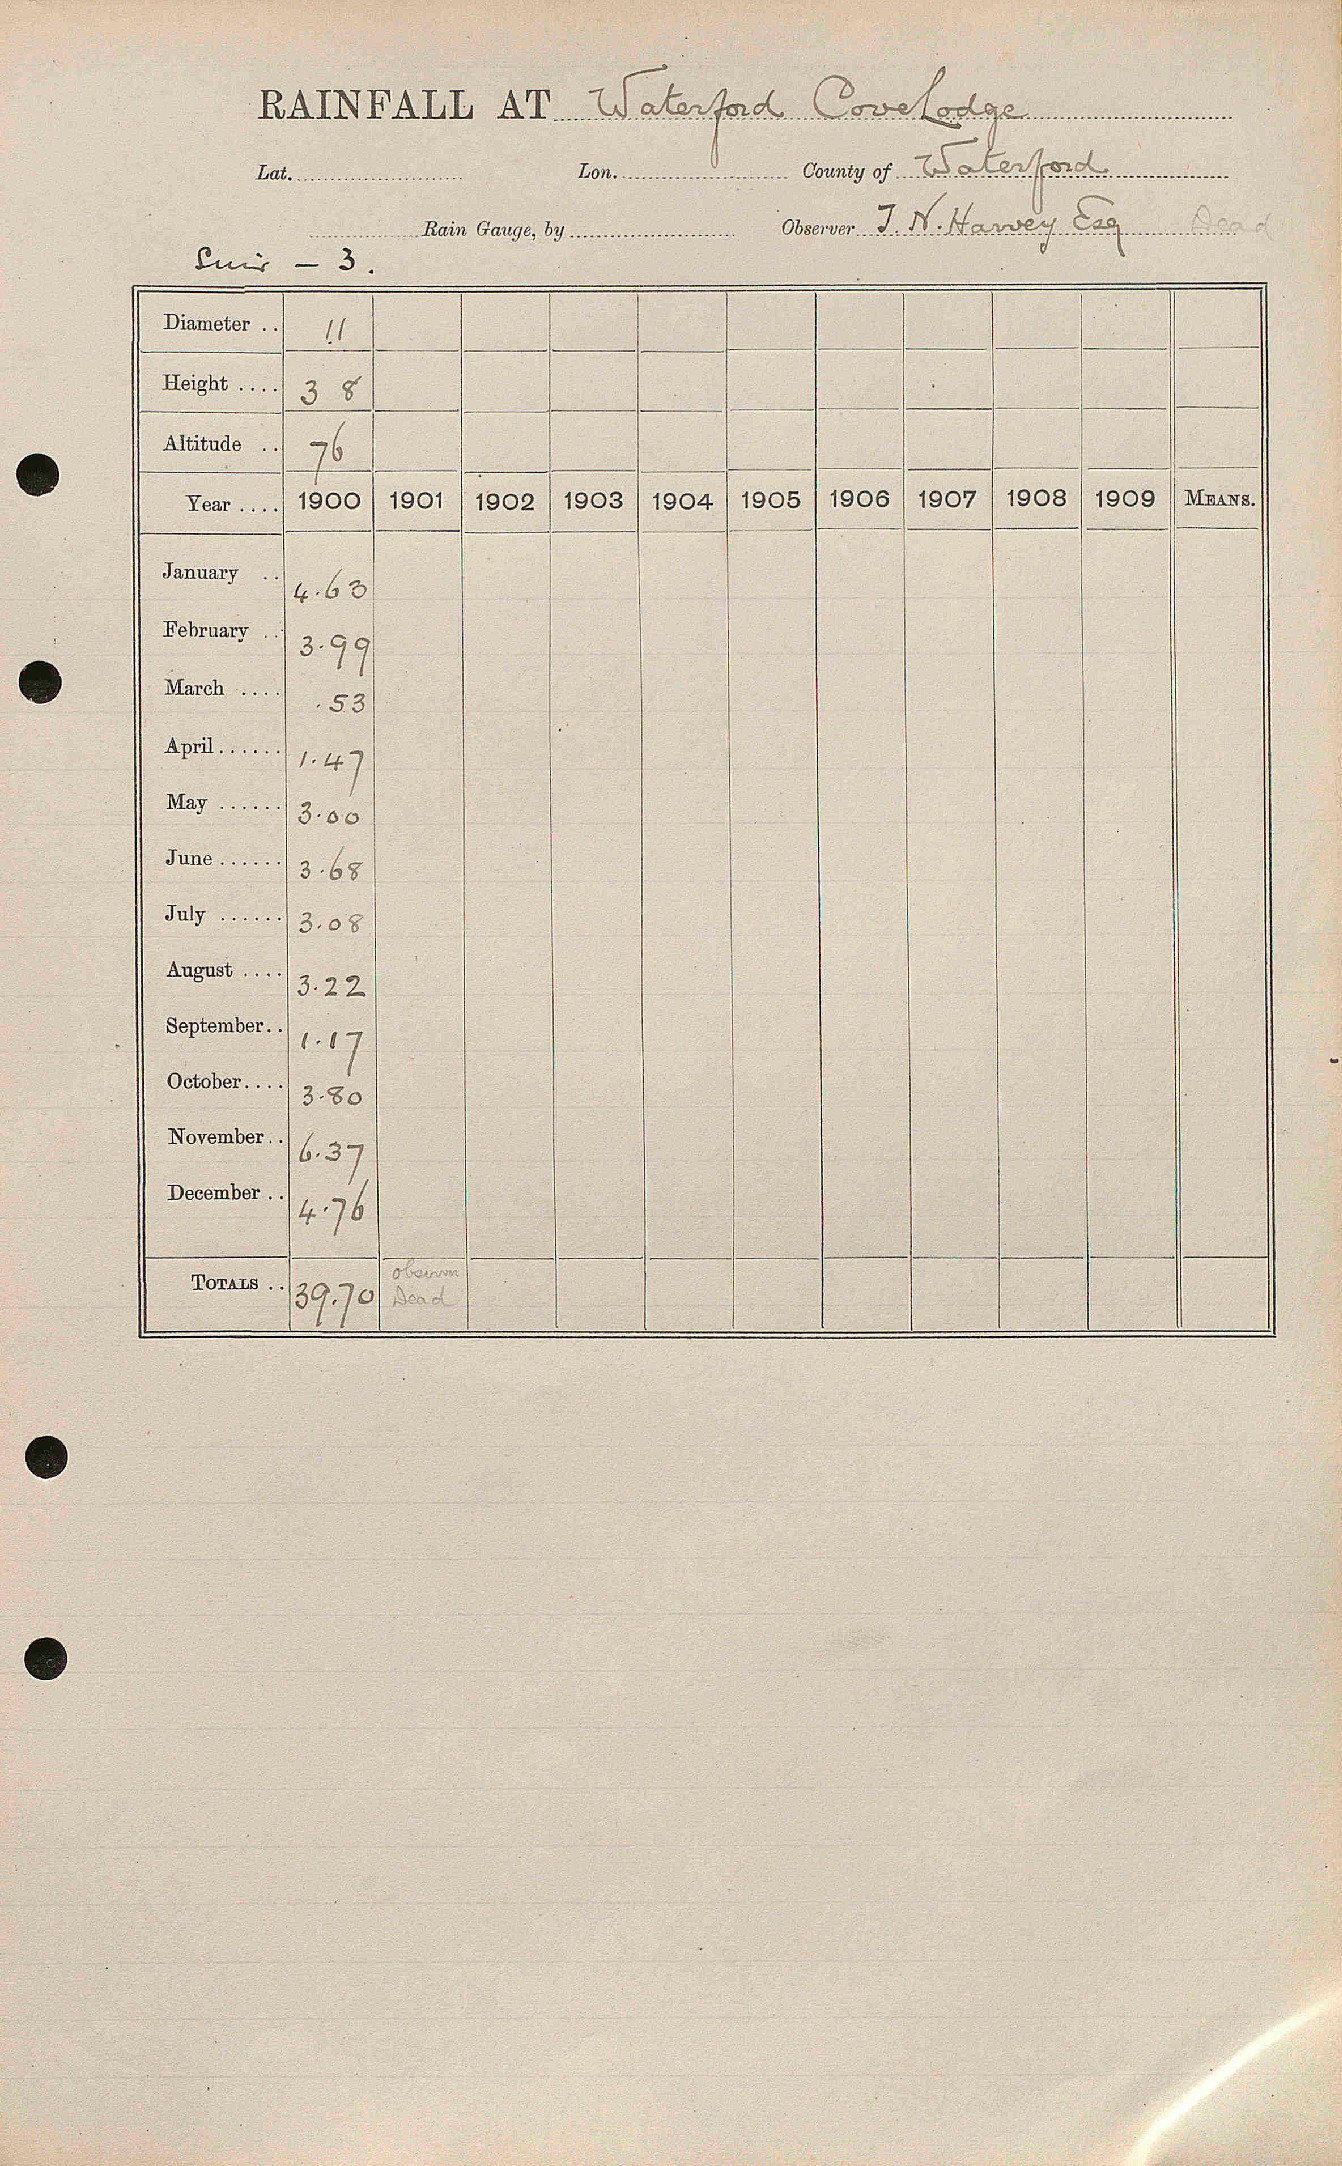 RAINFALL AT Waterford Cove Lodge
Lat. Lon. County of Waterford
Rain Gauge, by Observer T. N. Harvey Esq Dead
Suir - 3.
Diameter .. 11
Height .... 3 8
Altitude .. 76
Year .... 1900 1901 1902 1903 1904 1905 1906 1907 1908 1909 MEANS.
January .. 4.63
February .. 3.99
March .... .53
April ...... 1.47
May ...... 3.00
June ...... 3.68
July ...... 3.08
August .... 3.22
September .. 1.17
October .... 3.80
November .. 6.37
December .. 4.76
TOTALS .. 39.70 observer
Dead